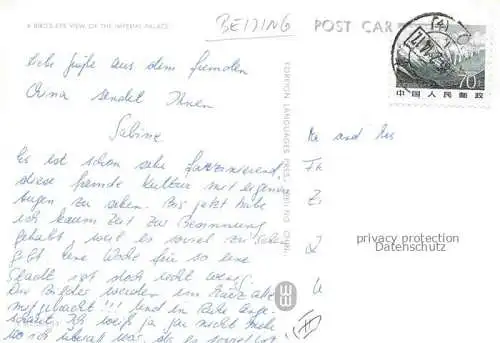 A BIRD'S-EYE VIEW OF THE IMPERIAL PALACE
BEIJING
POST CAR
70
中国人民邮政
Liebe Grüße aus dem fremden
China sendet Ihnen
Sabine
Es ist schon sehr faszinierend,
diese fremde Kultur mit eigenen
Augen zu sehen. Bis jetzt habe
ich kaum Zeit zur Besinnung
gehabt, weil es soviel zu sehen
gibt. Eine Woche für so eine
Stadt ist doch recht wenig.
Die Bilder werden im
mitgebracht!!! und in Ruhe ange-
schaut. Ich weiß ja gar nicht mehr
wo ich überall war, da es soviel
FOREIGN LANGUAGES PRESS
privacy protection
Datenschutz